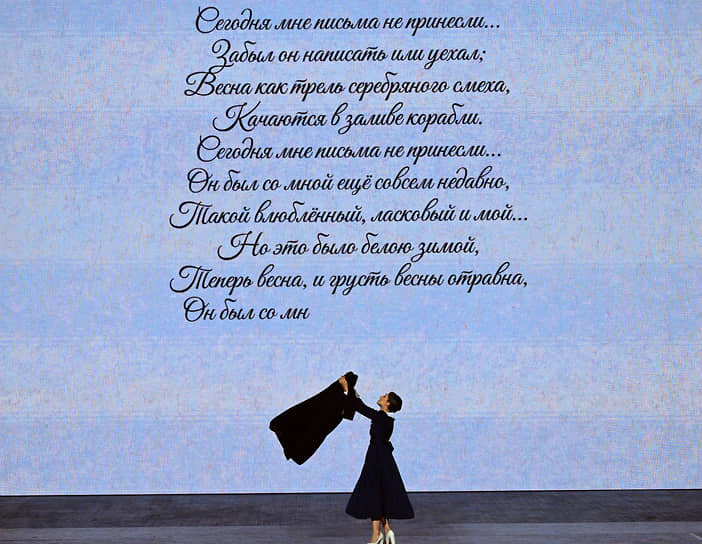 Сегодня мне письма не принесли...
Забыл он написать или уехал;
Весна как трель серебряного смеха,
Качаются в заливе корабли.
Сегодня мне письма не принесли...
Он был со мной ещё совсем недавно,
Такой влюблённый, ласковый и мой...
Но это было белою зимой,
Теперь весна, и грусть весны отравна,
Он был со мн